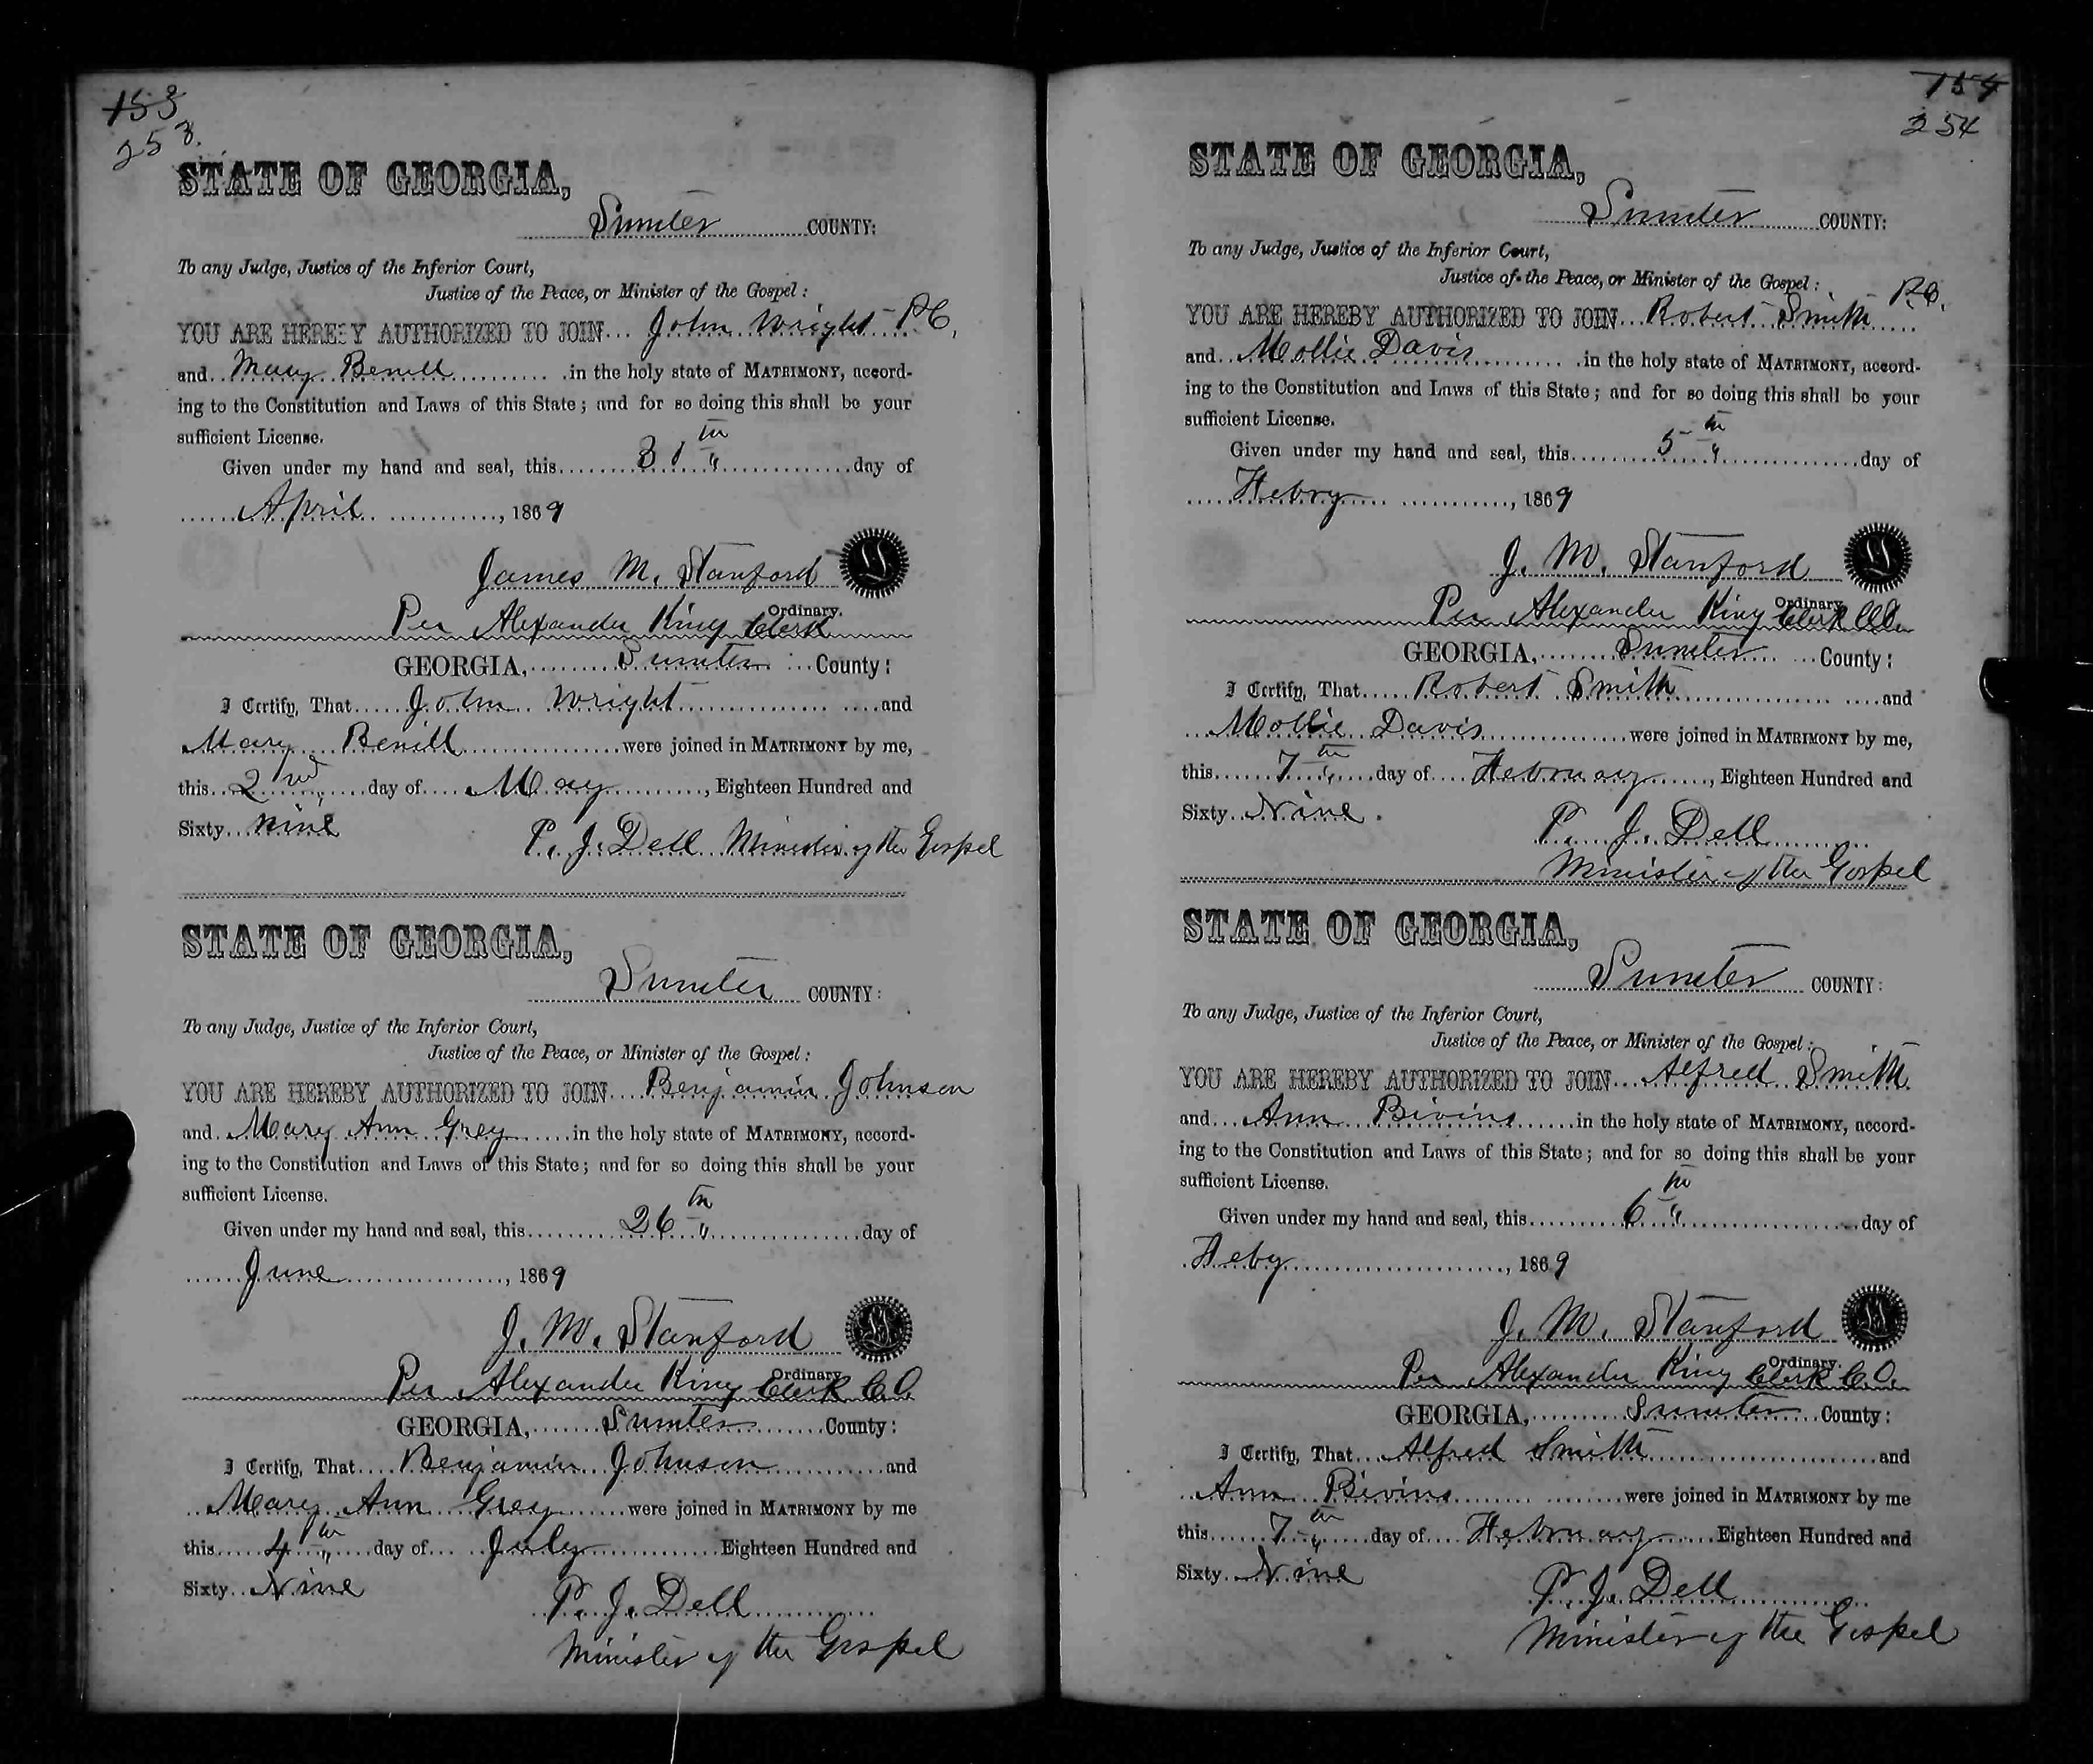 153
253.
STATE OF GEORGIA,
Sumter COUNTY:
To any Judge, Justice of the Inferior Court,
Justice of the Peace, or Minister of the Gospel:
YOU ARE HEREBY AUTHORIZED TO JOIN John Wright P.C.
and Mary Benill in the holy state of MATRIMONY, accord-
ing to the Constitution and Laws of this State; and for so doing this shall be your
sufficient License.
Given under my hand and seal, this 31th day of
April, 1869
James M. Stanford
Ordinary.
Per Alexander King Clerk
GEORGIA, Sumter County:
I Certify, That John Wright and
Mary Benill were joined in MATRIMONY by me,
this 2nd day of May, Eighteen Hundred and
Sixty nine
P. J. Dell Minister of the Gospel
STATE OF GEORGIA,
Sumter COUNTY:
To any Judge, Justice of the Inferior Court,
Justice of the Peace, or Minister of the Gospel:
YOU ARE HEREBY AUTHORIZED TO JOIN Benjamin Johnson
and Mary Ann Grey in the holy state of MATRIMONY, accord-
ing to the Constitution and Laws of this State; and for so doing this shall be your
sufficient License.
Given under my hand and seal, this 26th day of
June, 1869
J. M. Stanford
Ordinary
Per Alexander King Clerk C.O.
GEORGIA, Sumter County:
I Certify, That Benjamin Johnson and
Mary Ann Grey were joined in MATRIMONY by me
this 4th day of July Eighteen Hundred and
Sixty Nine
P. J. Dell
Minister of the Gospel
154
254
STATE OF GEORGIA,
Sumter COUNTY:
To any Judge, Justice of the Inferior Court,
Justice of the Peace, or Minister of the Gospel:
YOU ARE HEREBY AUTHORIZED TO JOIN Robert Smith P.C.
and Mollie Davis in the holy state of MATRIMONY, accord-
ing to the Constitution and Laws of this State; and for so doing this shall be your
sufficient License.
Given under my hand and seal, this 5th day of
Febry, 1869
J. M. Stanford
Ordinary
Per Alexander King Clerk C.O.
GEORGIA, Sumter County:
I Certify, That Robert Smith and
Mollie Davis were joined in MATRIMONY by me,
this 7th day of February, Eighteen Hundred and
Sixty Nine.
P. J. Dell
Minister of the Gospel
STATE OF GEORGIA,
Sumter COUNTY:
To any Judge, Justice of the Inferior Court,
Justice of the Peace, or Minister of the Gospel:
YOU ARE HEREBY AUTHORIZED TO JOIN Alfred Smith
and Ann Bivins in the holy state of MATRIMONY, accord-
ing to the Constitution and Laws of this State; and for so doing this shall be your
sufficient License.
Given under my hand and seal, this 6th day of
Feby, 1869
J. M. Stanford
Ordinary.
Per Alexander King Clerk C.O.
GEORGIA, Sumter County:
I Certify, That Alfred Smith and
Ann Bivins were joined in MATRIMONY by me
this 7th day of February Eighteen Hundred and
Sixty Nine
P. J. Dell
Minister of the Gospel